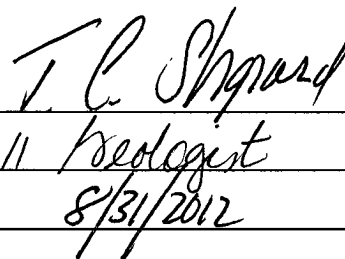 T. C. Shepard
ll Geologist
8/31/2012